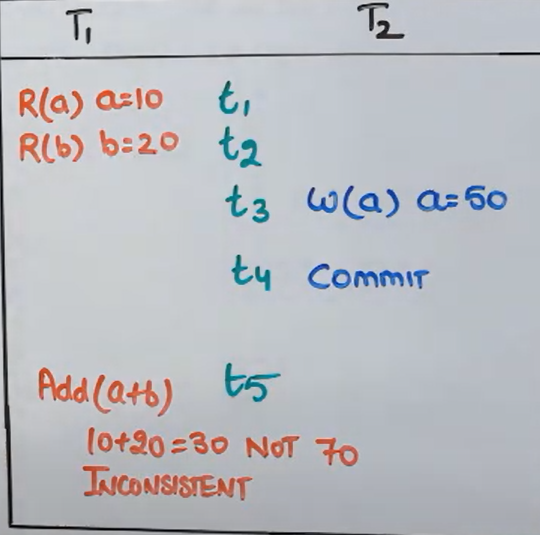 T1 T2
R(a) a=10 t1
R(b) b=20 t2
t3 W(a) a=50
t4 COMMIT
Add(a+b) t5
10+20=30 NOT 70
INCONSISTENT